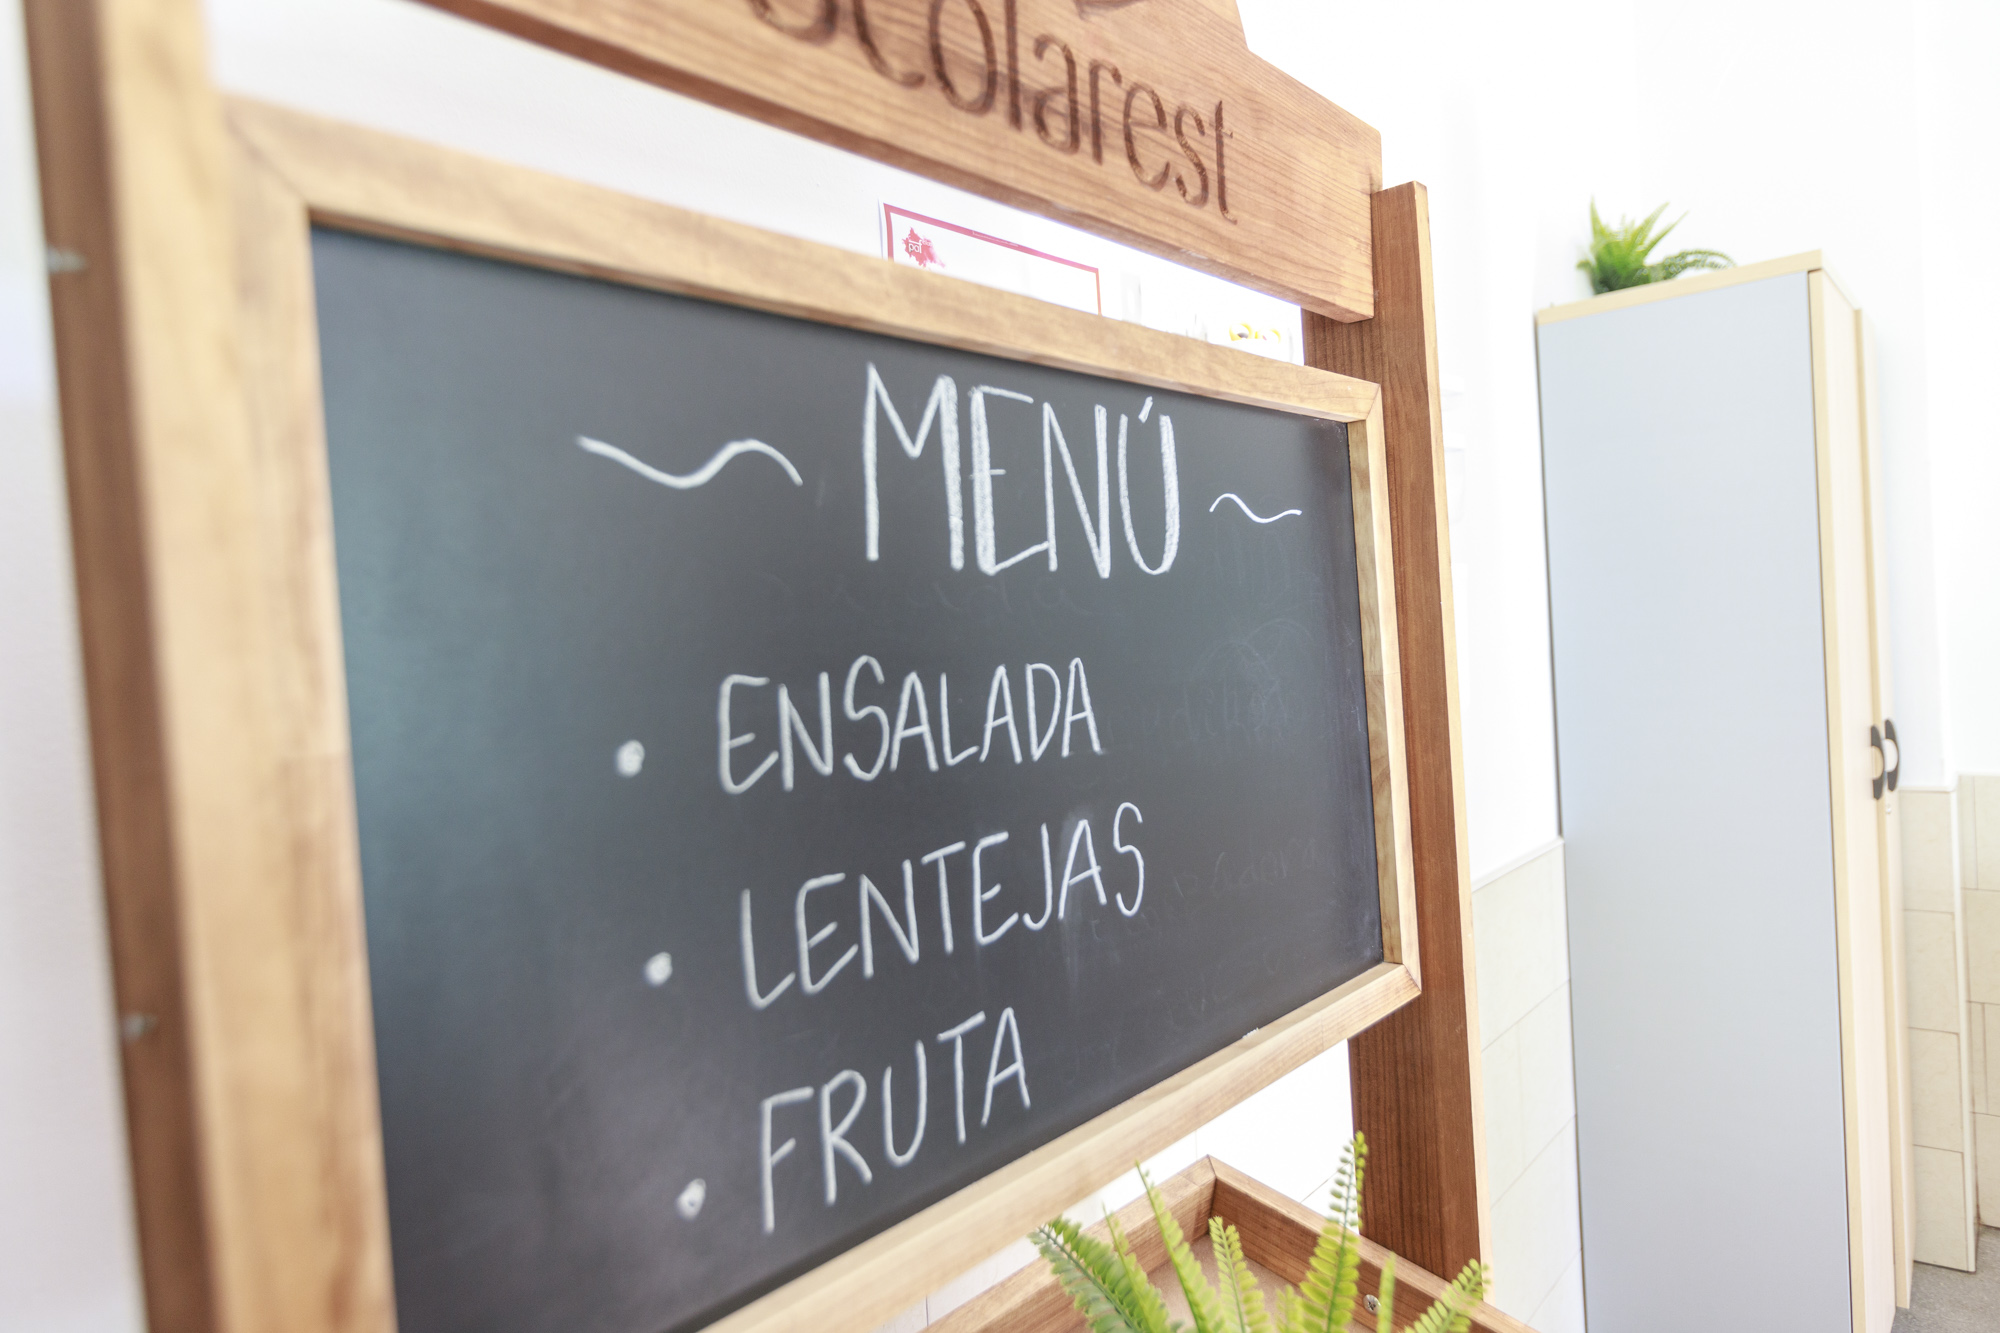 scolarest
paf
~ MENÚ ~
• ENSALADA
• LENTEJAS
• FRUTA